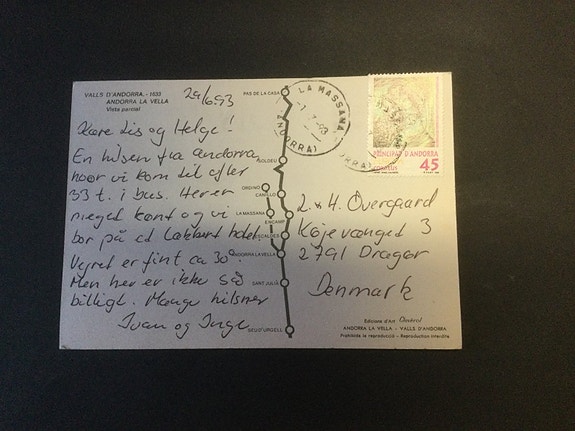 VALLS D'ANDORRA. - 1633
ANDORRA LA VELLA
Vista parcial
29/6.93
Kære Lis og Helge!
En hilsen fra Andorra
hvor vi kom til efter
33 t. i bus. Her er
meget kønt og vi
bor på et lækkert hotel
Vejret er fint ca 30°
Men her er ikke så
billigt. Mange hilsner
Ivan og Inge
PAS DE LA CASA
SOLDEU
ORDINO
CANILLO
LA MASSANA
ENCAMP
ANDORRA LA VELLA
SANT JULIÀ
SEU D'URGELL
LA MASSANA
PRINCIPAT D'ANDORRA
CORREUS
45
L. & H. Overgaard
Køjevænget 3
2791 Dragør
Denmark
Edicions d'Art
ANDORRA LA VELLA - VALLS D'ANDORRA
Prohibida la reproducció - Reproduction interdite